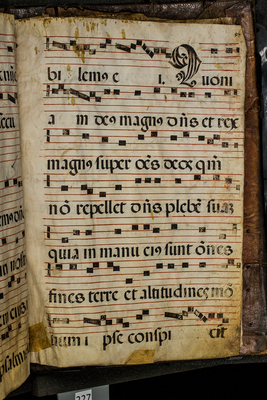 bi lem⁹ e i. Quoni
a m de⁹ magn⁹ dñs et rex
magn⁹ super oẽs deos qm̃
nõ repellet dñs plebẽ suã
quia in manu ei⁹ sunt oẽs
fines terre et altitudines mõ
tium i pse conspi cit
227